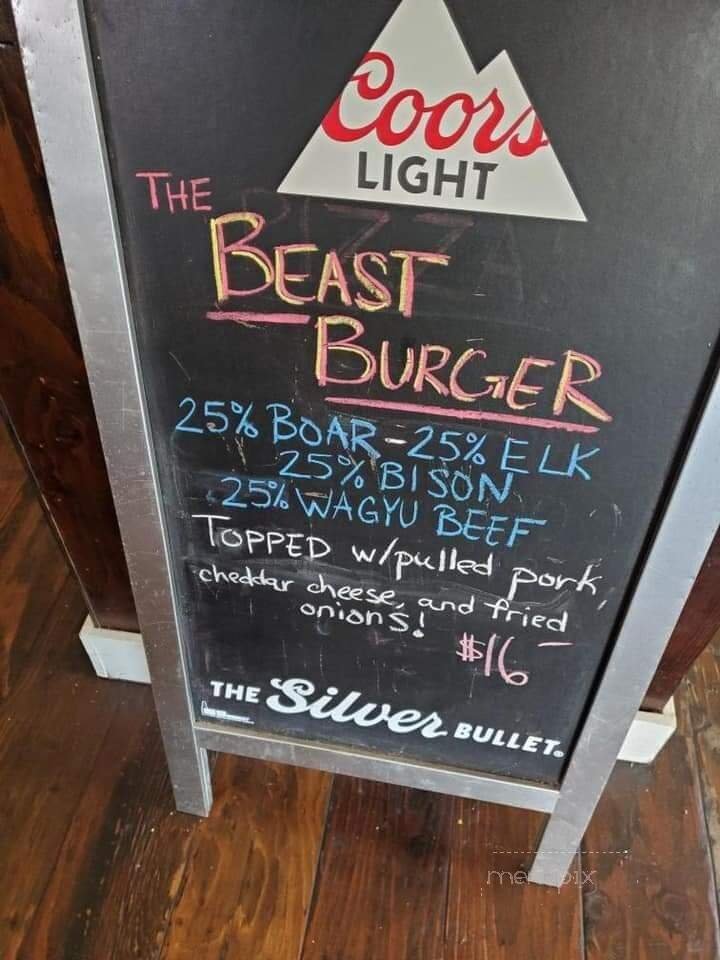 Coors
LIGHT
THE
BEAST
BURGER
25% BOAR - 25% ELK
25% BISON
25% WAGYU BEEF
TOPPED w/pulled pork,
cheddar cheese, and fried
onions!
$16
THE Silver BULLET.